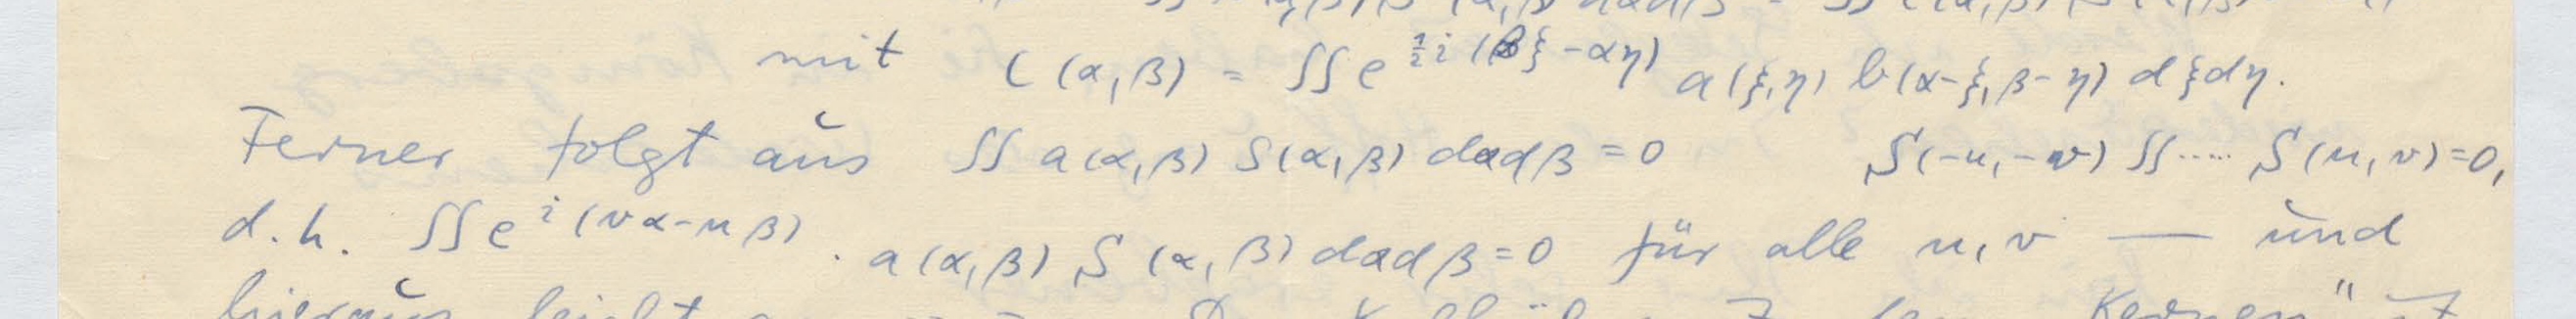 mit C(α,β) = ∫∫ e^{½i(βξ-αη)} a(ξ,η) b(α-ξ,β-η) dξdη.
Ferner folgt aus ∫∫ a(α,β) S(α,β) dαdβ = 0 S(-u,-v) ∫∫ ..... S(u,v)=0,
d.h. ∫∫ e^{i(vα-uβ)} . a(α,β) S(α,β) dαdβ = 0 für alle u,v — und
hieraus leicht